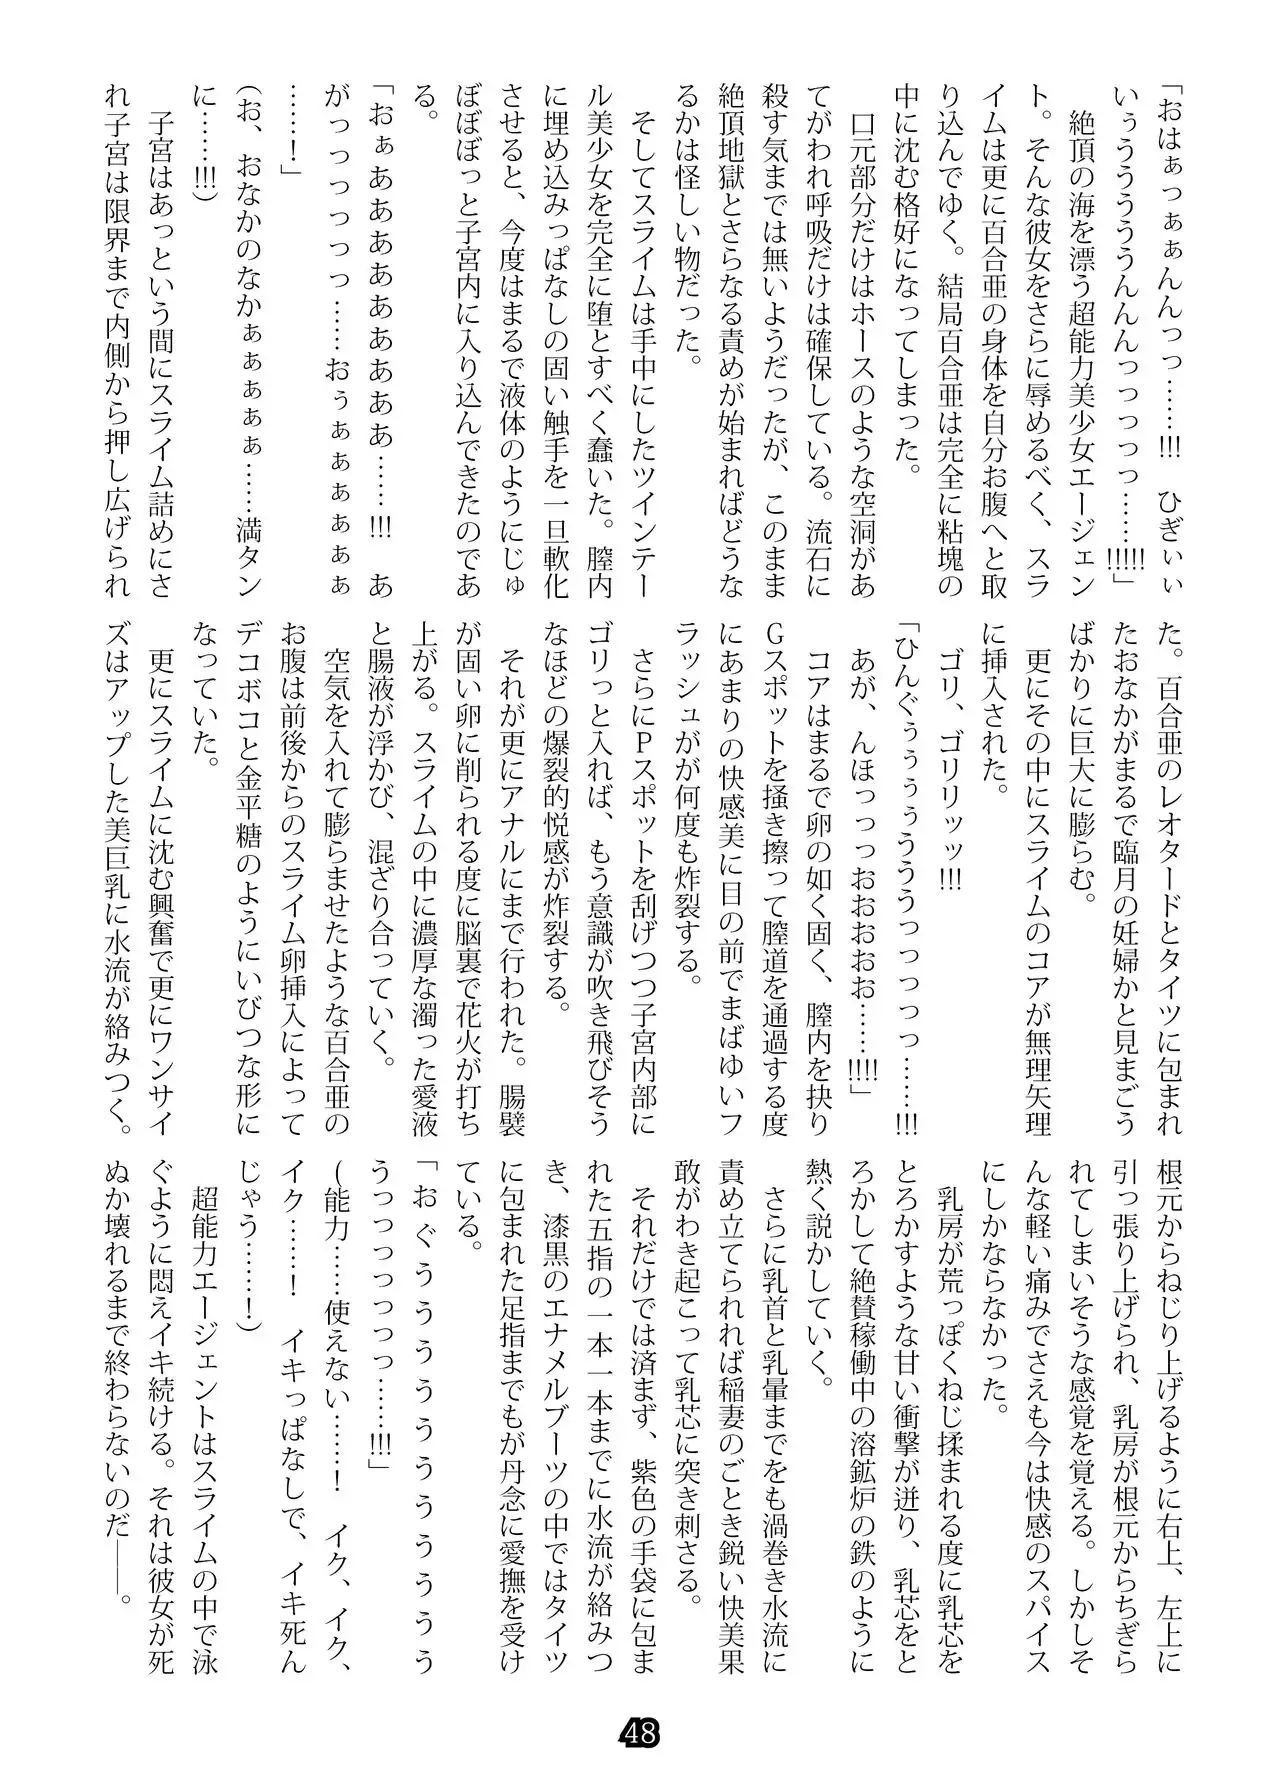 「おはぁっぁぁんんっっ……!!!　ひぎぃぃ
いぅうううううんんんっっっっっ……!!!!!」
　絶頂の海を漂う超能力美少女エージェン
ト。そんな彼女をさらに辱めるべく、スラ
イムは更に百合亜の身体を自分お腹へと取
り込んでゆく。結局百合亜は完全に粘塊の
中に沈む格好になってしまった。
　口元部分だけはホースのような空洞があ
てがわれ呼吸だけは確保している。流石に
殺す気までは無いようだったが、このまま
絶頂地獄とさらなる責めが始まればどうな
るかは怪しい物だった。
　そしてスライムは手中にしたツインテー
ル美少女を完全に堕とすべく蠢いた。膣内
に埋め込みっぱなしの固い触手を一旦軟化
させると、今度はまるで液体のようにじゅ
ぼぼぼっと子宮内に入り込んできたのであ
る。
「おぁああああああああああ……!!!　あ
がっっっっっっ……おぅぁぁぁぁぁぁ
……！」
（お、おなかのなかぁぁぁぁぁ……満タン
に……!!!）
　子宮はあっという間にスライム詰めにさ
れ子宮は限界まで内側から押し広げられ
た。百合亜のレオタードとタイツに包まれ
たおなかがまるで臨月の妊婦かと見まごう
ばかりに巨大に膨らむ。
　更にその中にスライムのコアが無理矢理
に挿入された。
　ゴリ、ゴリリッッ!!!
「ひんぐぅぅぅぅうううっっっっっ……!!!
あが、んほっっっおおおおお……!!!!」
　コアはまるで卵の如く固く、膣内を抉り
Ｇスポットを掻き擦って膣道を通過する度
にあまりの快感美に目の前でまばゆいフ
ラッシュがが何度も炸裂する。
　さらにＰスポットを刮げつつ子宮内部に
ゴリっと入れば、もう意識が吹き飛びそう
なほどの爆裂的悦感が炸裂する。
　それが更にアナルにまで行われた。腸襞
が固い卵に削られる度に脳裏で花火が打ち
上がる。スライムの中に濃厚な濁った愛液
と腸液が浮かび、混ざり合っていく。
　空気を入れて膨らませたような百合亜の
お腹は前後からのスライム卵挿入によって
デコボコと金平糖のようにいびつな形に
なっていた。
　更にスライムに沈む興奮で更にワンサイ
ズはアップした美巨乳に水流が絡みつく。
根元からねじり上げるように右上、左上に
引っ張り上げられ、乳房が根元からちぎら
れてしまいそうな感覚を覚える。しかしそ
んな軽い痛みでさえも今は快感のスパイス
にしかならなかった。
　乳房が荒っぽくねじ揉まれる度に乳芯を
とろかすような甘い衝撃が迸り、乳芯をと
ろかして絶賛稼働中の溶鉱炉の鉄のように
熱く説かしていく。
　さらに乳首と乳暈までをも渦巻き水流に
責め立てられれば稲妻のごとき鋭い快美果
敢がわき起こって乳芯に突き刺さる。
　それだけでは済まず、紫色の手袋に包ま
れた五指の一本一本までに水流が絡みつ
き、漆黒のエナメルブーツの中ではタイツ
に包まれた足指までもが丹念に愛撫を受け
ている。
「おぐぅううううううううう
うっっっっっっ……!!!」
（能力……使えない……！　イク、イク、
イク……！　イキっぱなしで、イキ死ん
じゃう……！）
　超能力エージェントはスライムの中で泳
ぐように悶えイキ続ける。それは彼女が死
ぬか壊れるまで終わらないのだ――。
48